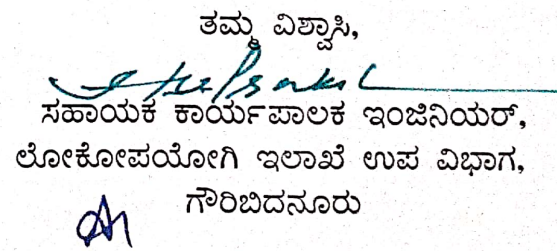 ತಮ್ಮ ವಿಶ್ವಾಸಿ,
ಸಹಾಯಕ ಕಾರ್ಯಪಾಲಕ ಇಂಜಿನಿಯರ್,
ಲೋಕೋಪಯೋಗಿ ಇಲಾಖೆ ಉಪ ವಿಭಾಗ,
ಗೌರಿಬಿದನೂರು